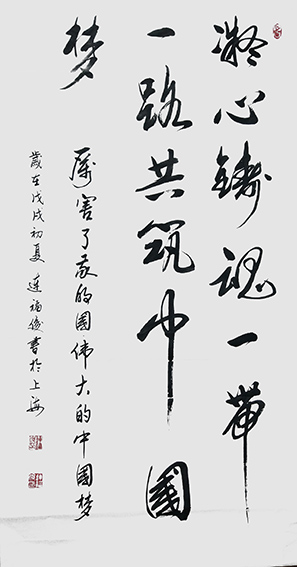 凝心铸魂一带
一路共筑中国
梦
厉害了我的国伟大的中国梦
歲在戊戌初夏 连福俊書於上海